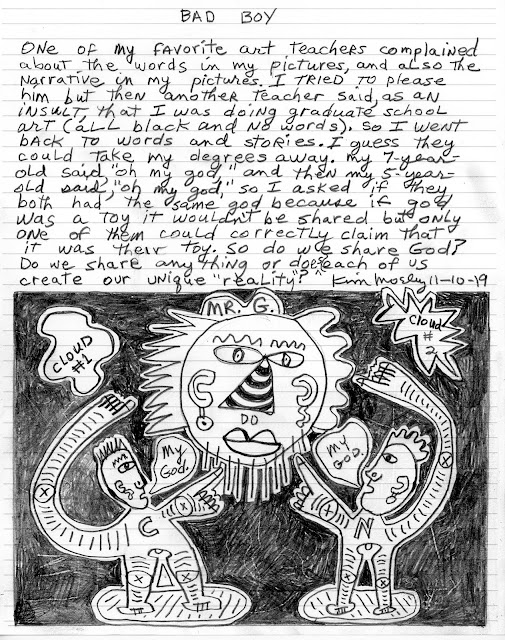 BAD BOY
ONE OF MY FAVORITE ART TEACHERS COMPLAINED
ABOUT THE WORDS IN MY PICTURES, AND ALSO THE
NARRATIVE IN MY PICTURES. I TRIED TO PLEASE
HIM BUT THEN ANOTHER TEACHER SAID, AS AN
INSULT, THAT I WAS DOING GRADUATE SCHOOL
ART (ALL BLACK AND NO WORDS). SO I WENT
BACK TO WORDS AND STORIES. I GUESS THEY
COULD TAKE MY DEGREES AWAY. MY 7-YEAR-
OLD SAID "OH MY GOD," AND THEN MY 5-YEAR-
OLD SAID, "OH MY GOD," SO I ASKED IF THEY
BOTH HAD THE SAME GOD BECAUSE IF GOD
WAS A TOY IT WOULDN'T BE SHARED BUT ONLY
ONE OF THEM COULD CORRECTLY CLAIM THAT
IT WAS THEIR TOY. SO DO WE SHARE GOD?
DO WE SHARE ANYTHING OR DOES EACH OF US
CREATE OUR UNIQUE "REALITY?" Kim Mosley 11-10-19
MR. G.
CLOUD
#1
CLOUD
#
2
DO
MY
GOD.
MY
GOD.
C
N